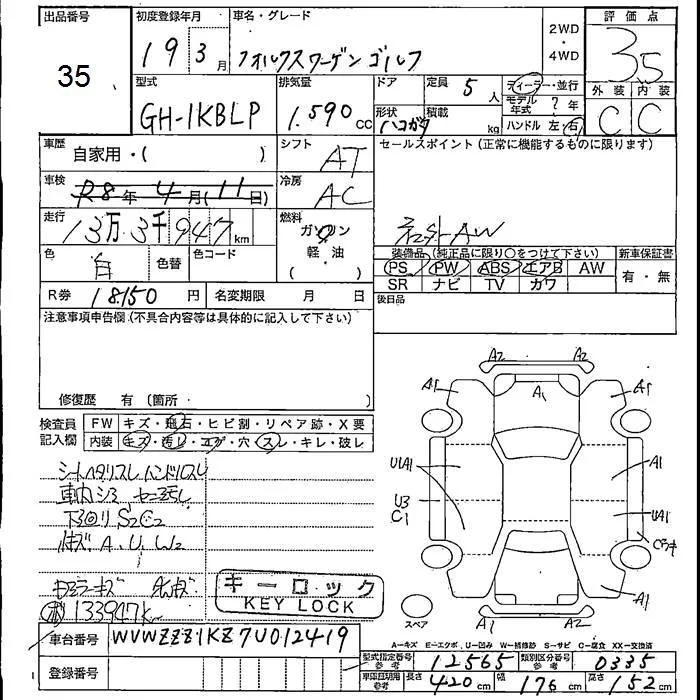 出品番号 初度登録年月 車名・グレード 評価点
35
19 3月 フォルクスワーゲン ゴルフ
2WD・4WD
3.5
型式 排気量 ドア 定員 5人 ディーラー・並行
GH-1KBLP 1.590cc
形状 ハコガタ 積載 kg
モデル年式 ?年
ハンドル 左・右
外装 内装
C C
車歴 自家用・( ) シフト AT
セールスポイント (正常に機能するものに限ります)
車検 R8年4月(11日) 冷房 AC
走行 13万3千947km 燃料 ガソリン
軽・油
( )
社外AW
色 白 色替 色コード
装備品 (純正品に限り○をつけて下さい) 新車保証書
PS PW ABS エアB AW 有・無
SR ナビ TV カワ
R券 18150円 名変期限 月 日
後日品
注意事項申告欄 (不具合内容等は具体的に記入して下さい)
修復歴 有 (箇所 )
検査員記入欄 FW キズ・飛石・ヒビ割・リペア跡・X要
内装 キズ・汚レ・コゲ・穴・スレ・キレ・破レ
シートヘタリスレ ハンドルスレ
車内シミ
下回り S2C2
キズ A, U, W2
133947k
キーロック
KEY LOCK
A2 A2
A1 A1 A1
U1A1 A1
U3 U1A1
C1
A1
A2 A2
スペア
A=キズ E=エクボ U=凹み W=補修跡 S=サビ C=腐食 XX=交換済
車台番号 WVWZZZ1KZ7U012419
型式指定番号 参考 12565 類別区分番号 参考 0335
登録番号
参考 長さ 420cm 幅 176cm 高さ 152cm